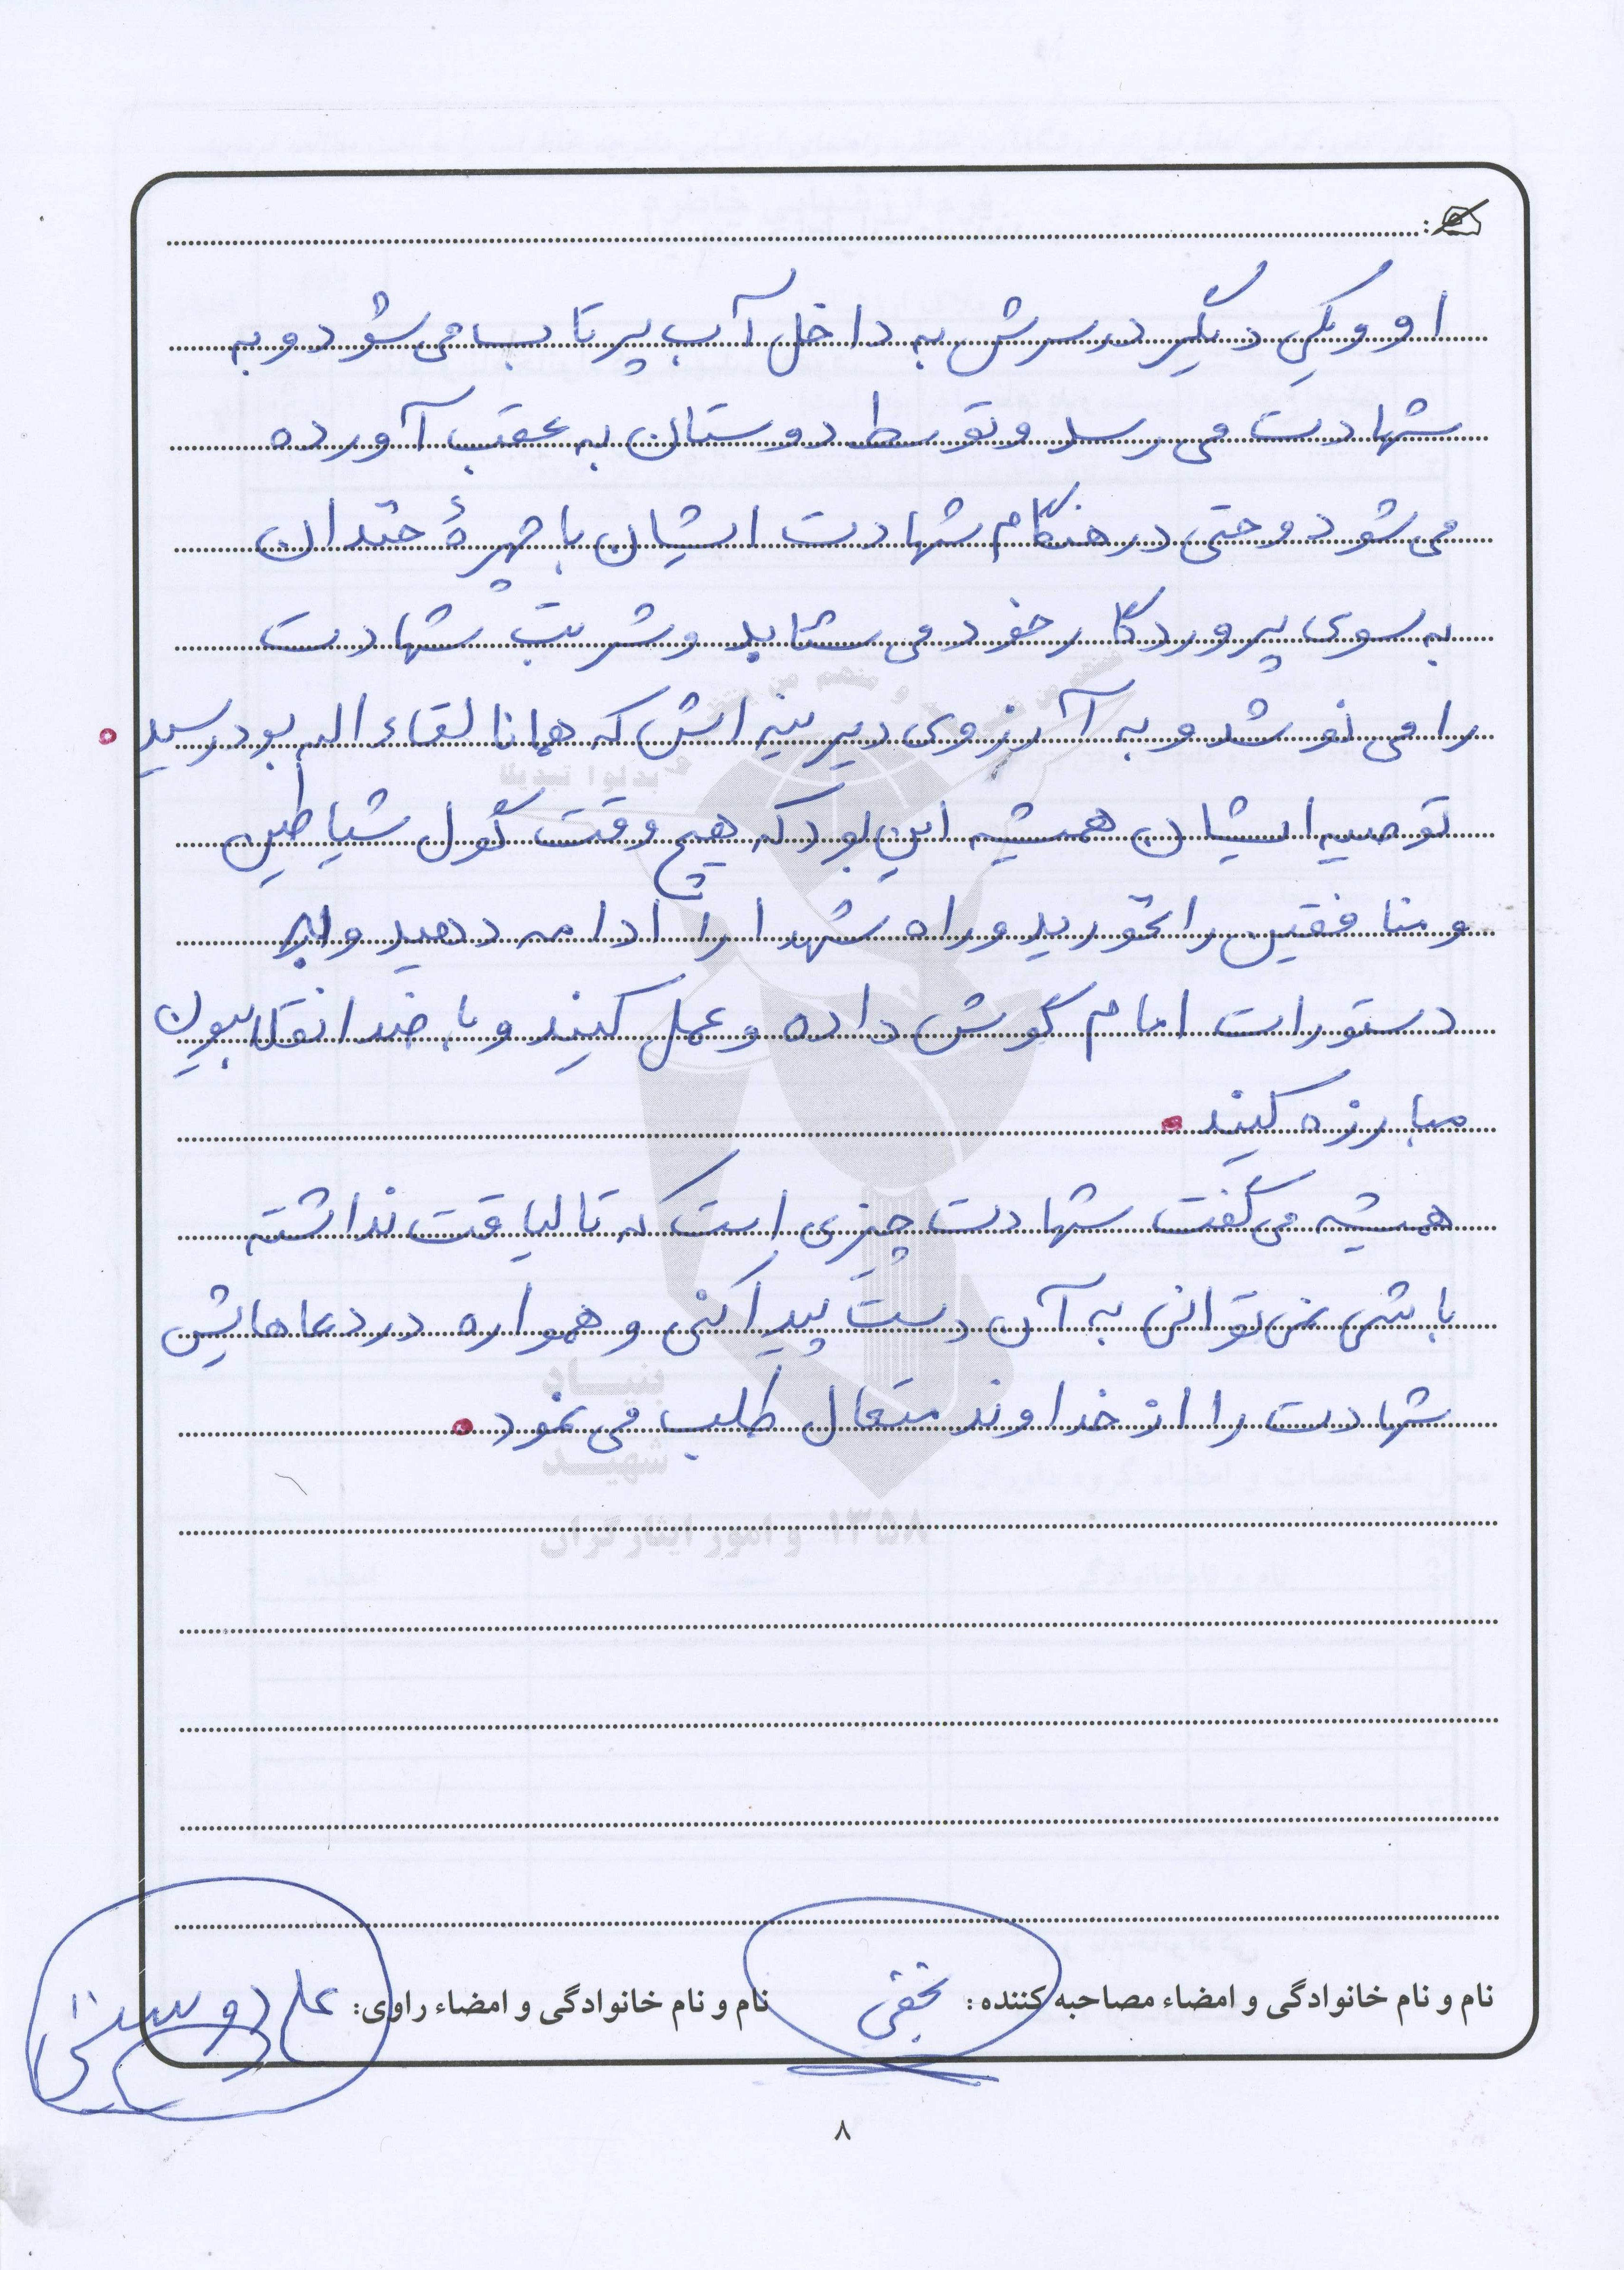 او و یکی دیگر در سرش به داخل آب پرتاب می شود و به
شهادت می رسد و توسط دوستان به عقب آورده
می شود و حتی در هنگام شهادت ایشان با چهرهٔ خندان
به سوی پروردگار خود می شتابد و شربت شهادت
را می نوشد و به آرزوی دیرینه اش که همانا لقاء اله بود رسید.
توصیه ایشان همیشه این بود که هیچ وقت گول شیاطین
و منافقین را نخورید و راه شهدا را ادامه دهید و به
دستورات امام گوش داده و عمل کنید و با ضد انقلابیون
مبارزه کنید.
همیشه می گفت شهادت چیزی است که تا لیاقت نداشته
باشی نمی توانی به آن دست پیدا کنی و همواره در دعاهایش
شهادت را از خداوند متعال طلب می نمود.
بنیاد
شهید
و امور ایثارگران ۱۳۵۸
نام و نام خانوادگی و امضاء مصاحبه کننده: نام و نام خانوادگی و امضاء راوی: علی
۸